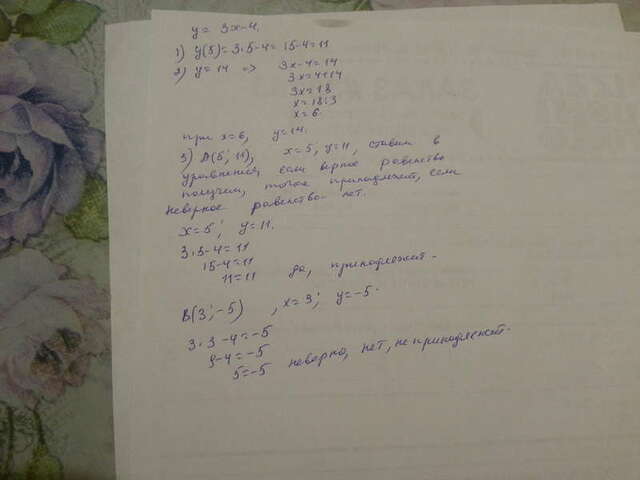 y = 3x-4.
1) y(5)=3·5-4=15-4=11
2) y=14 => 3x-4=14
3x=4+14
3x=18
x=18:3
x=6.
при x=6, y=14.
3) A(5; 11), x=5, y=11, ставим в
уравнение, если верное равенство
получим, точка принадлежит, если
неверное равенство- нет.
x=5; y=11.
3·5-4=11
15-4=11
11=11 да, принадлежит.
B(3; -5) , x=3; y=-5.
3·3-4=-5
9-4=-5
5=-5 неверно, нет, не принадлежит.